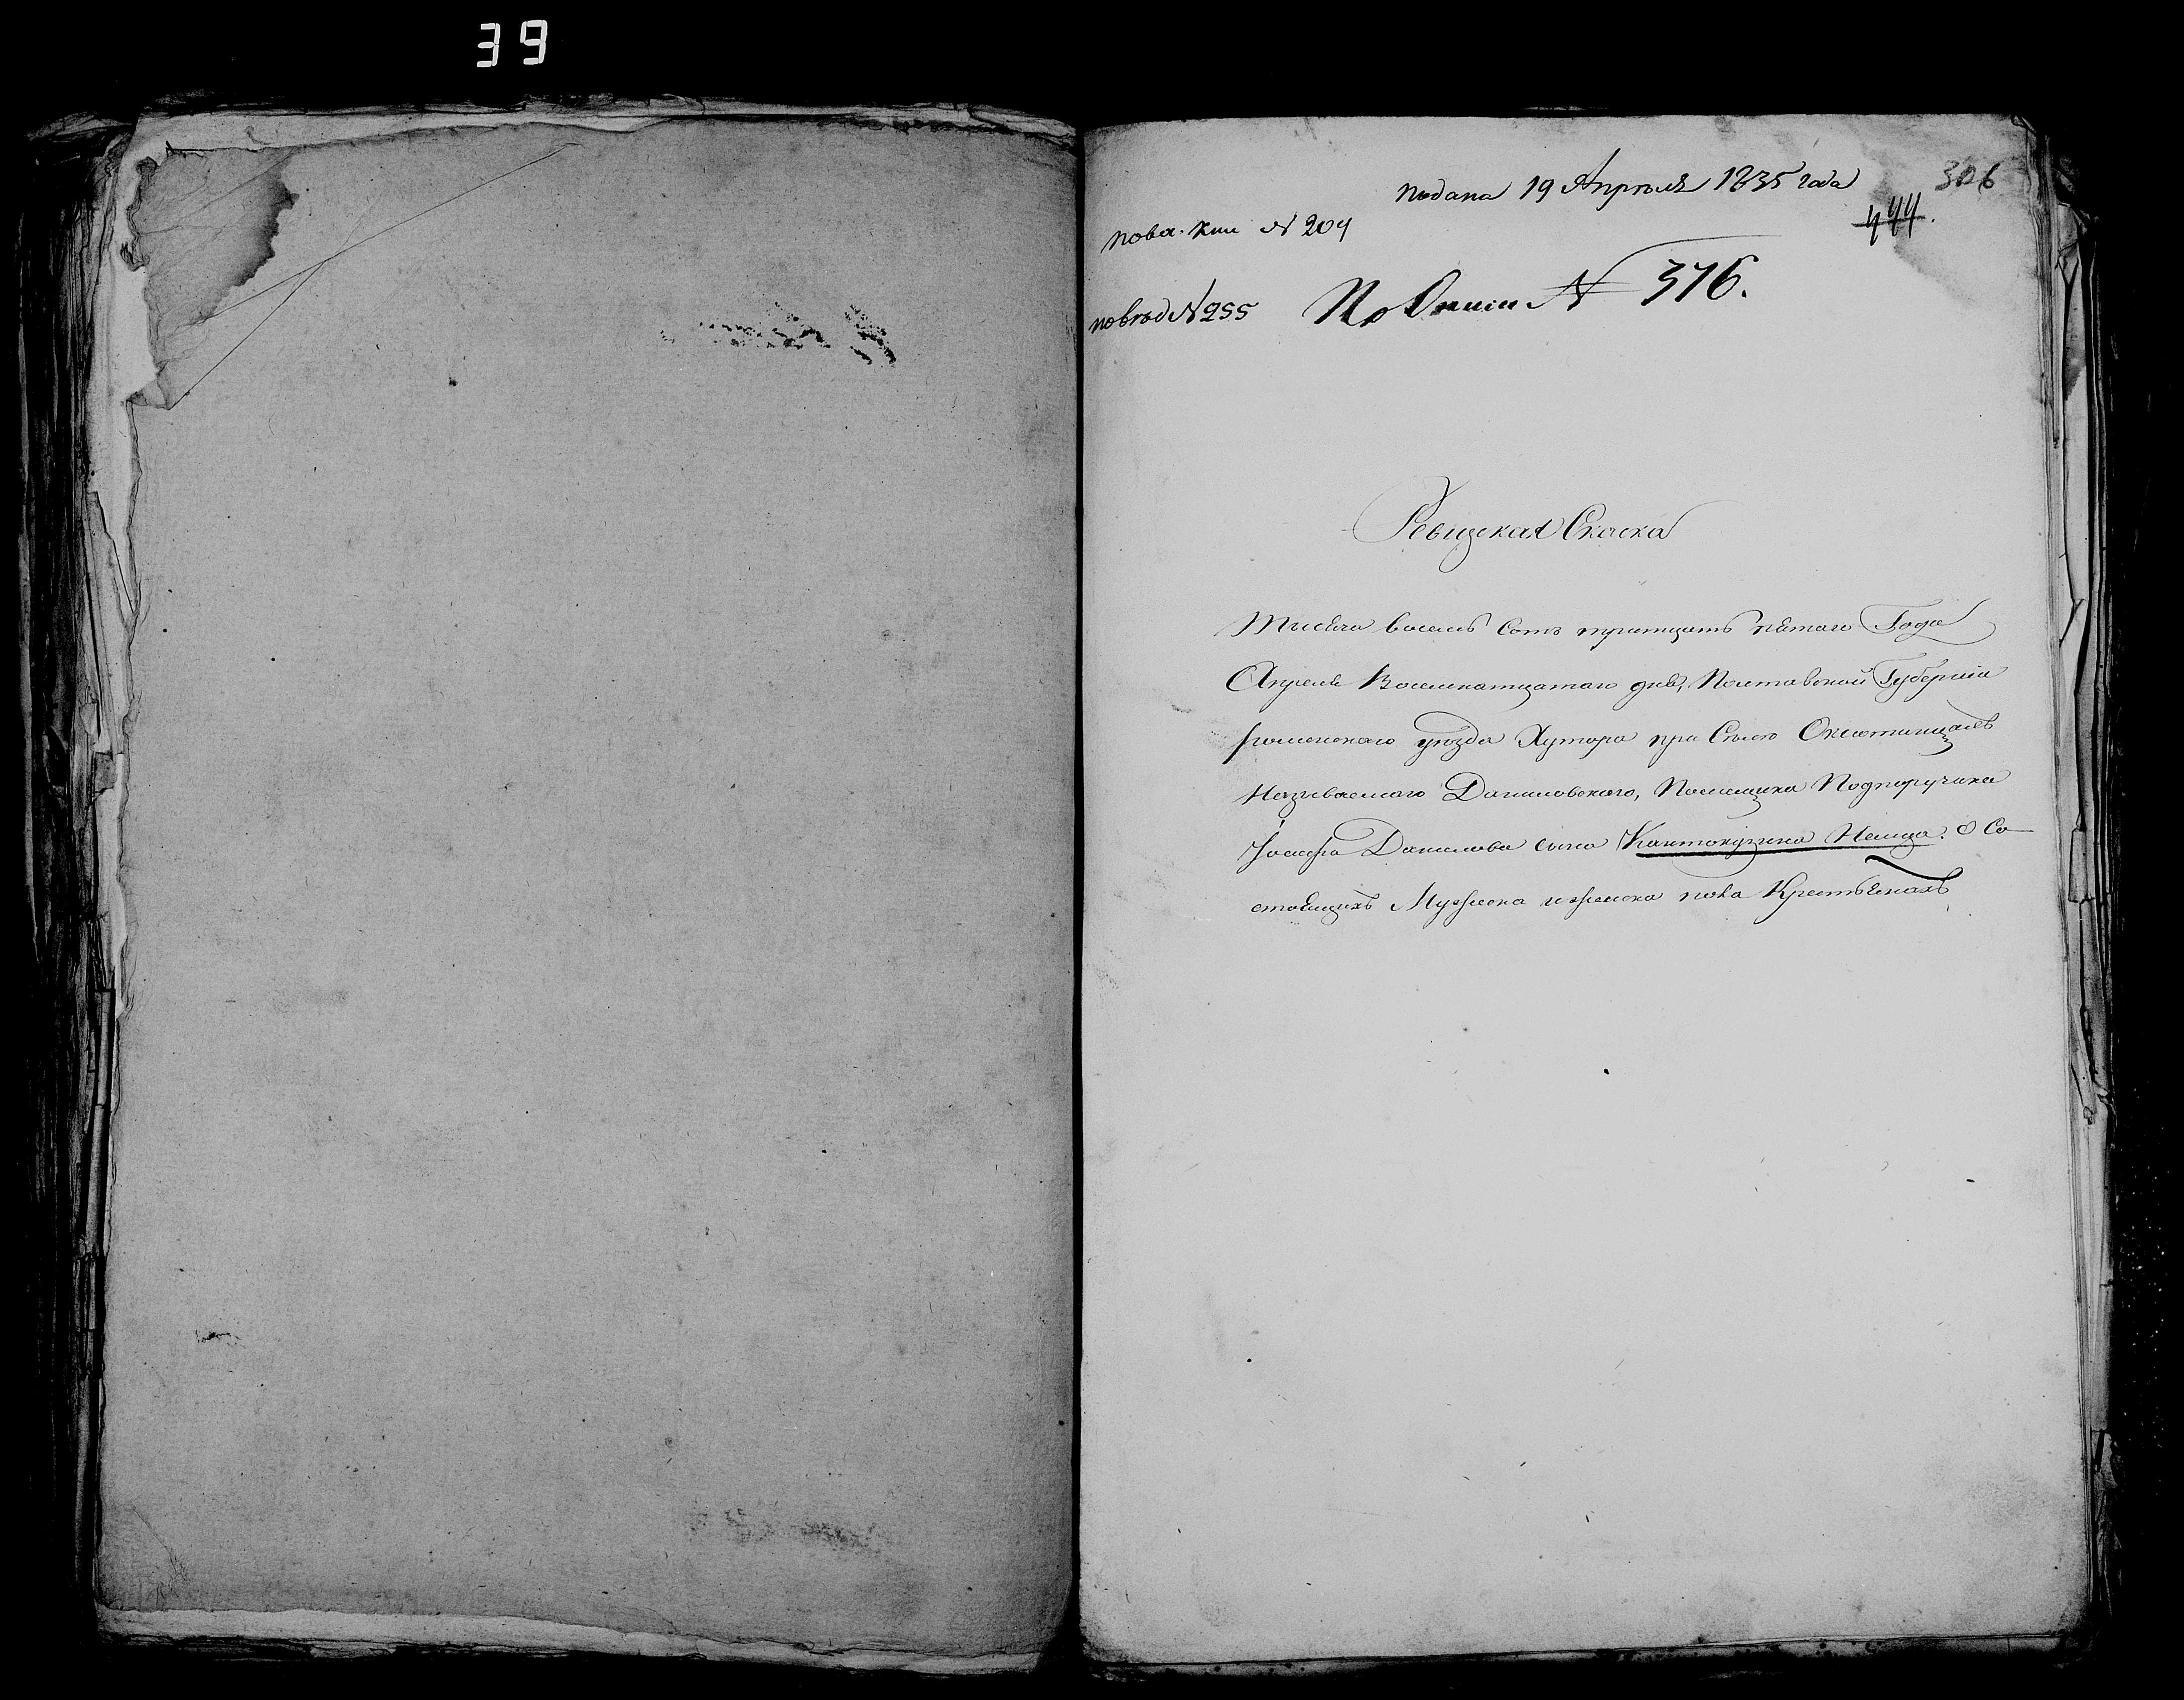 39
подана 19 Апреля 1835 года
306
444.
по вход № 255
По Описи № 376.
Ревизская Скаска
Тысяча восемь сотъ тритцать пятаго Года
Апреля Восемнатцатаго дня, Полтавской Губерніи
роменского уезда Хутора при Селе
Называемого Даниловского, Помещика Подпоручика
Іосифа Данилова сына Кантокузина Немца. О Со
стоящихъ Мужеска и женска пола Крестьянахъ